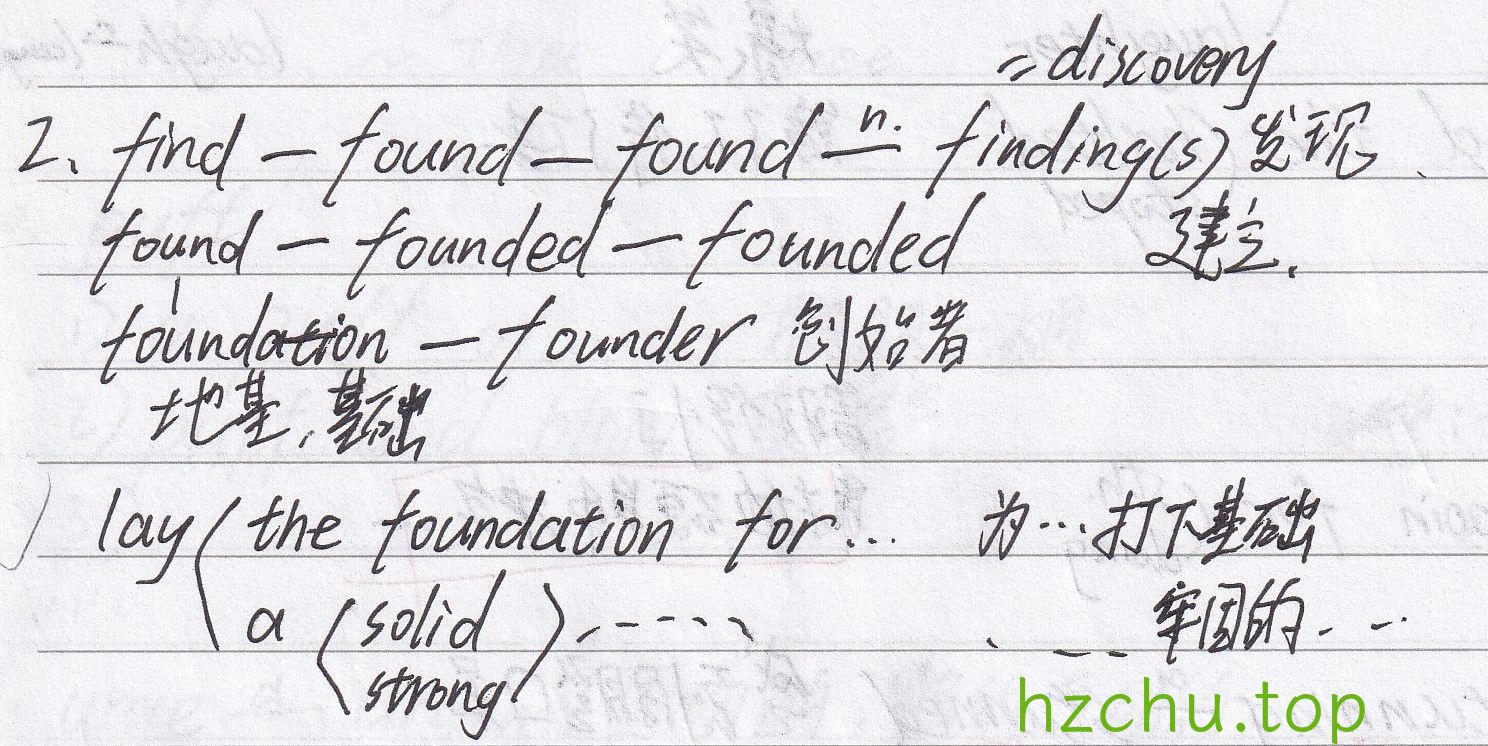 = discovery
2、find — found — found —n. finding(s) 发现.
found — founded — founded 建立.
foundation — founder 创始者
地基、基础
lay the foundation for... 为...打下基础
a solid ..... ....牢固的...
strong
hzchu.top